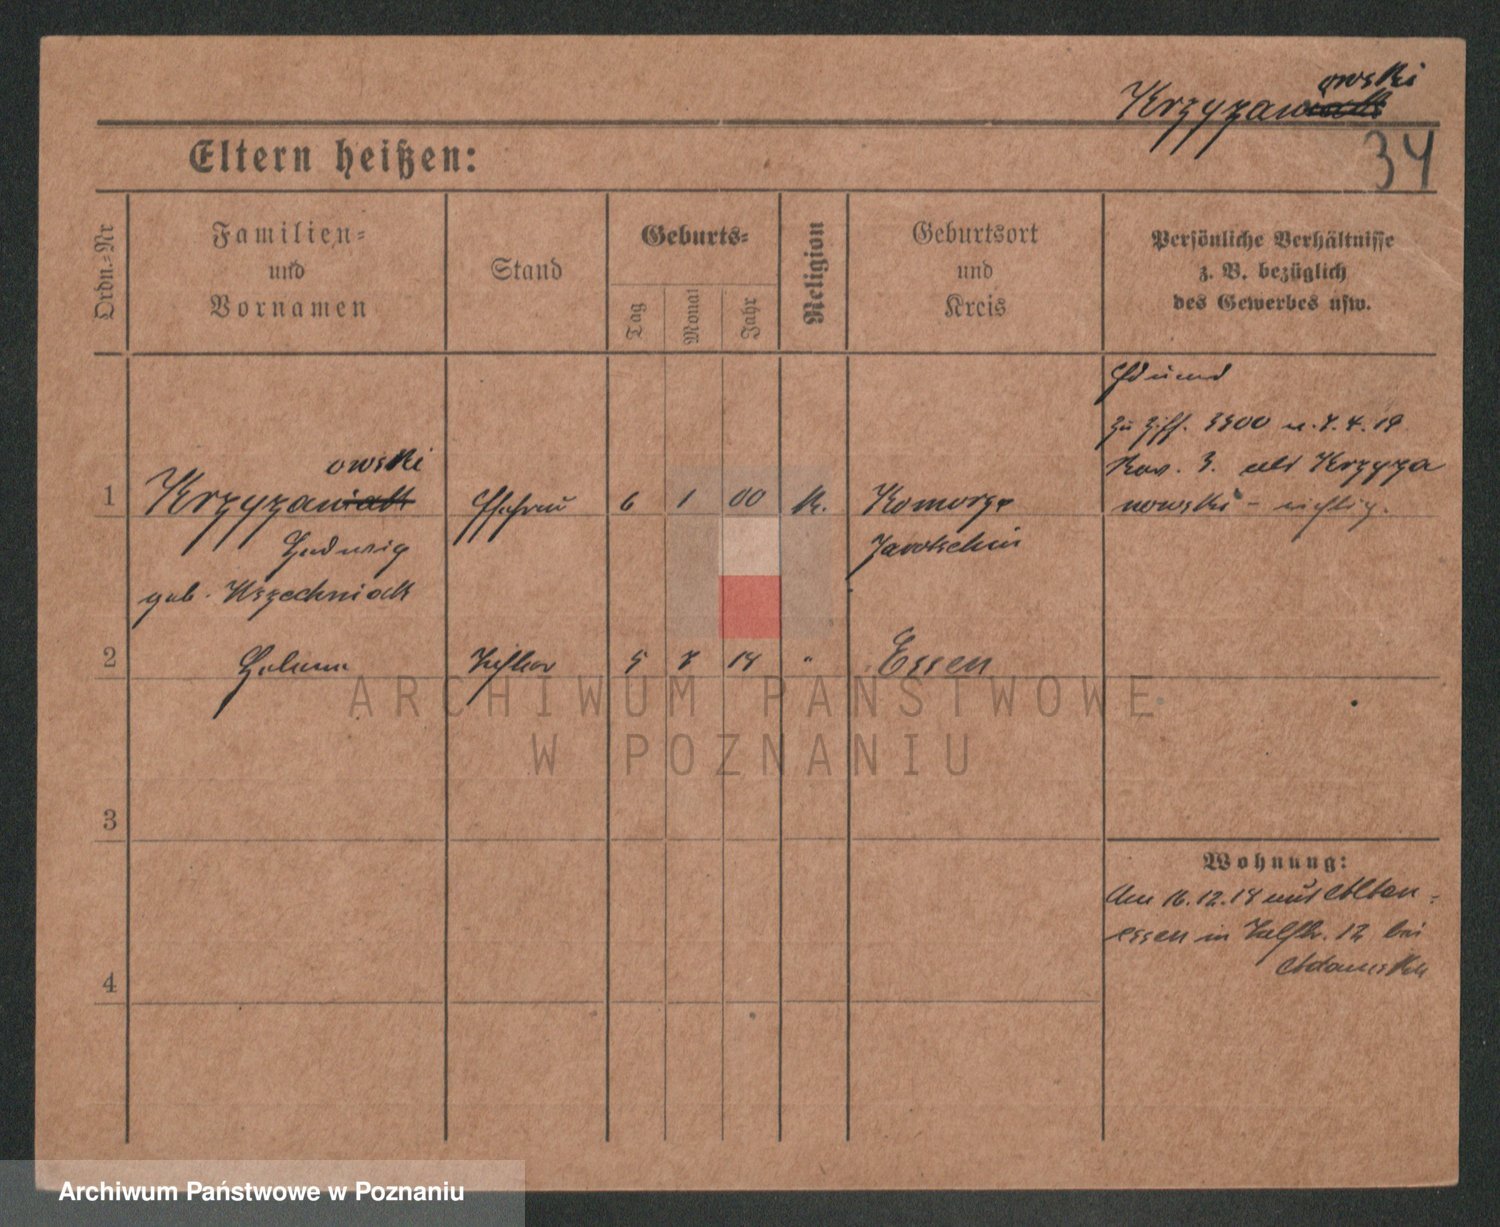 owski
Krzyzaniak
34
Eltern heißen:
Ordn.-Nr
Familien-
und
Vornamen
Stand
Geburts-
Tag
Monat
Jahr
Religion
Geburtsort
und
Kreis
Persönliche Verhältnisse
z. B. bezüglich
des Gewerbes usw.
1
owski
Krzyzaniak
Hedwig
geb. Wrzechniack
Ehefrau
6
1
00
K.
Komorze
Jarotschin
Edmund
zu Ziff. 3300
Krzyza
nowski - richtig.
2
Helene
Tochter
5
8
18
"
Essen
3
4
Wohnung:
Am 16.12.18 aus Alten-
essen in 12 bei
Adamski
ARCHIWUM PAŃSTWOWE
W POZNANIU
Archiwum Państwowe w Poznaniu